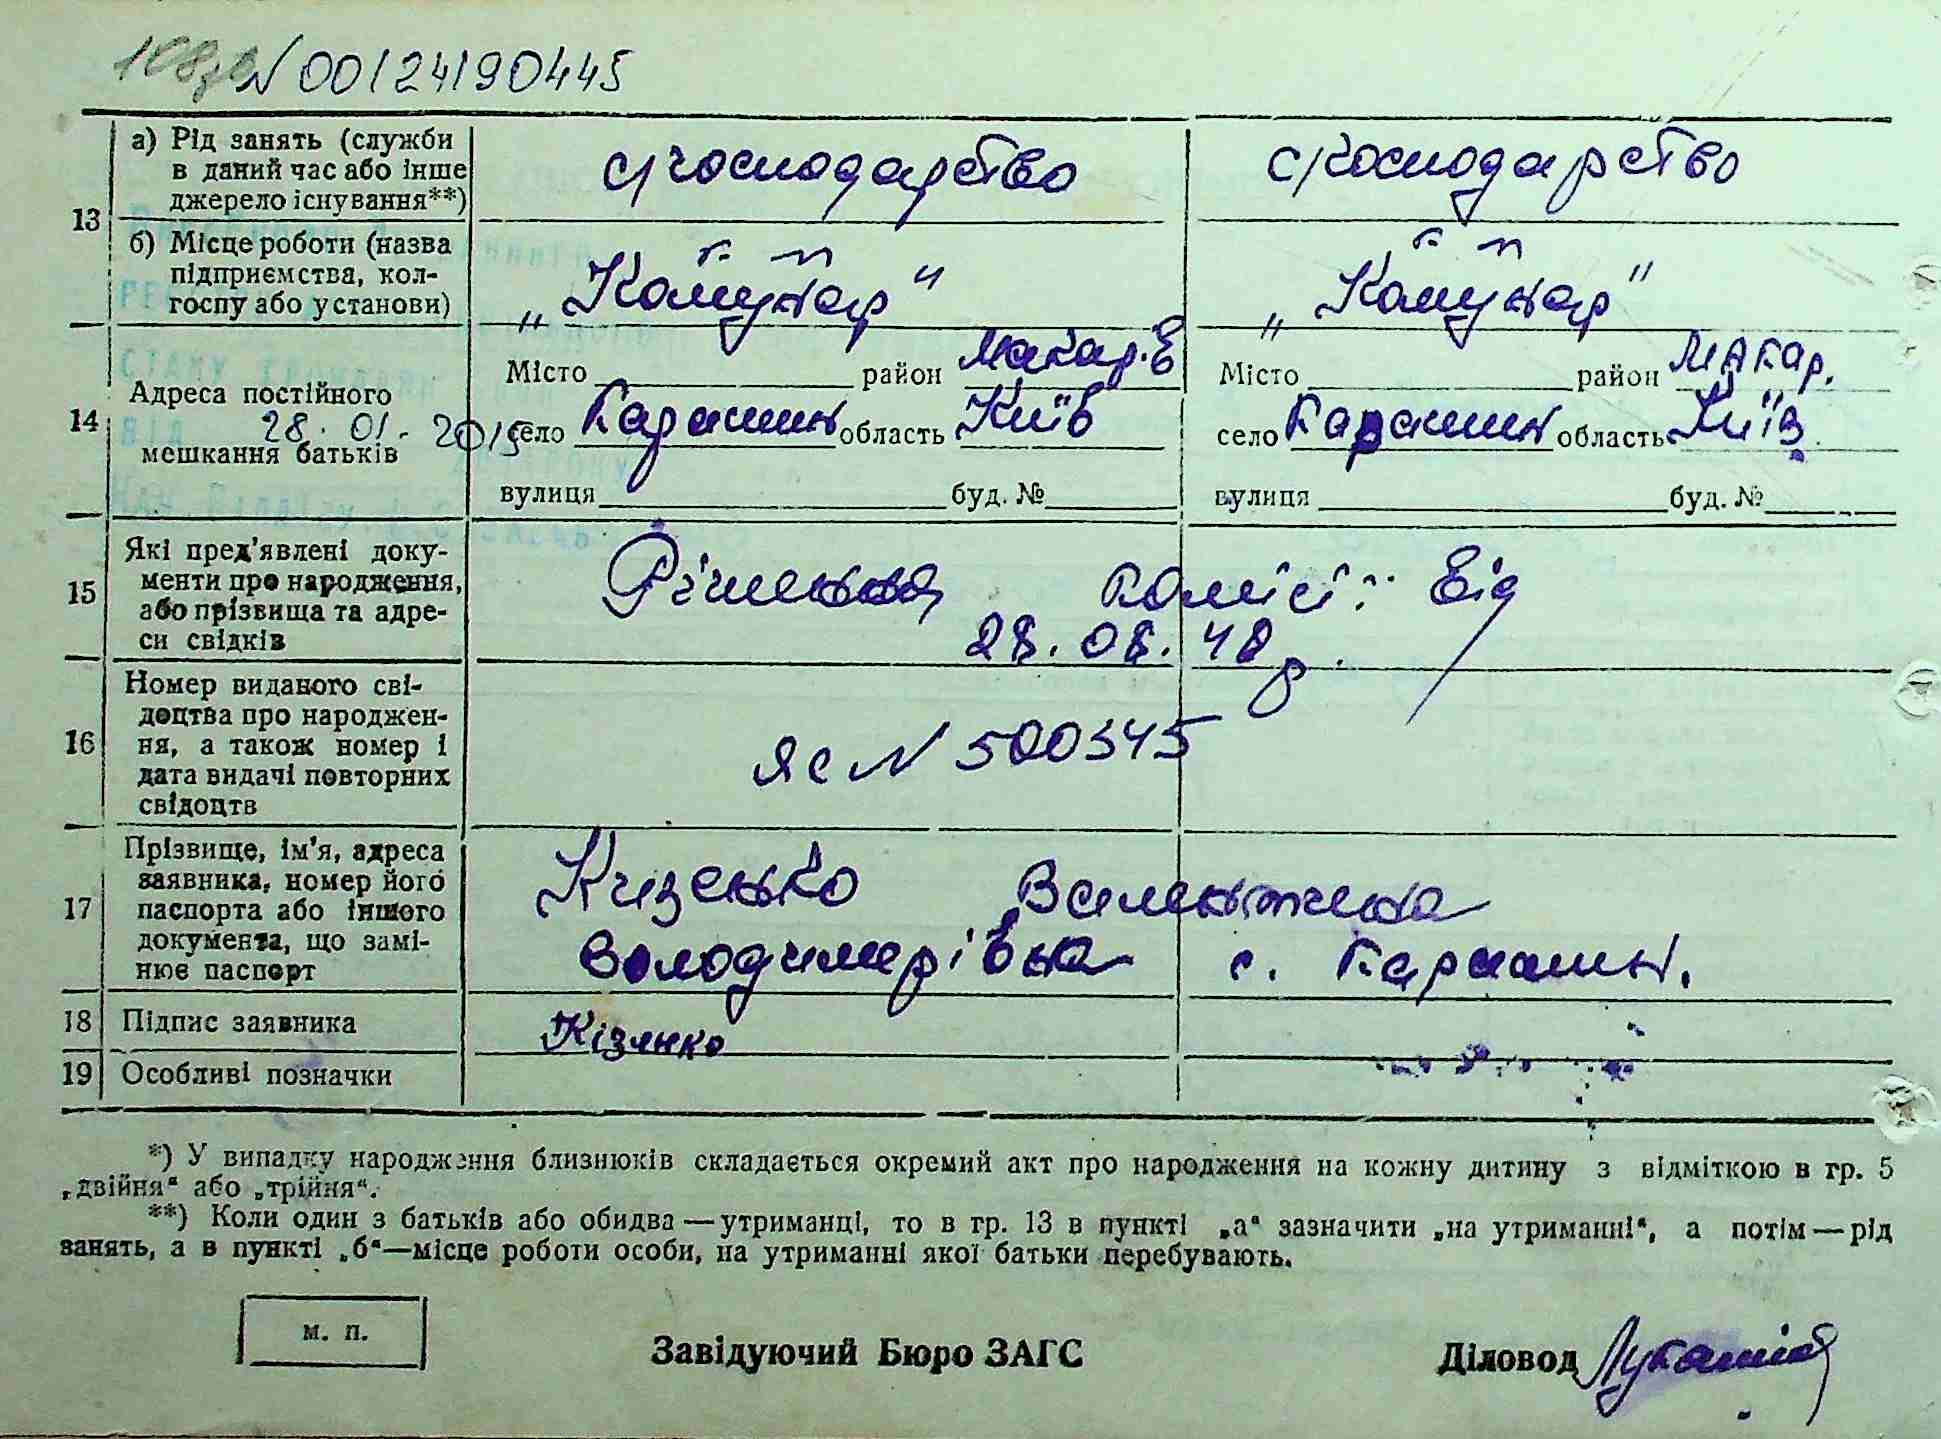 N 00124190445
13 а) Рід занять (служби в даний час або інше джерело існування**)
с/господарство с/господарство
б) Місце роботи (назва підприємства, колгоспу або установи)
к-г п
„Комунар“ „Комунар“
14 Адреса постійного мешкання батьків
28.01.2015
Місто район Макар.в Місто район Макар.
село Карашин область Київ село Карашин область Київ
вулиця буд. № вулиця буд. №
15 Які пред'явлені документи про народження, або прізвища та адреси свідків
Рішення комісії від
28.08.48 р.
16 Номер виданого свідоцтва про народження, а також номер і дата видачі повторних свідоцтв
ЯС N 500345
17 Прізвище, ім'я, адреса заявника, номер його паспорта або іншого документа, що замінює паспорт
Кизенько Валентина
Володимирівна с. Карашин.
18 Підпис заявника Кізянко
19 Особливі позначки
*) У випадку народження близнюків складається окремий акт про народження на кожну дитину з відміткою в гр. 5
„двійня“ або „трійня“.
**) Коли один з батьків або обидва — утриманці, то в гр. 13 в пункті „а“ зазначити „на утриманні“, а потім — рід
занять, а в пункті „б“—місце роботи особи, на утриманні якої батьки перебувають.
м. п.
Завідуючий Бюро ЗАГС Діловод